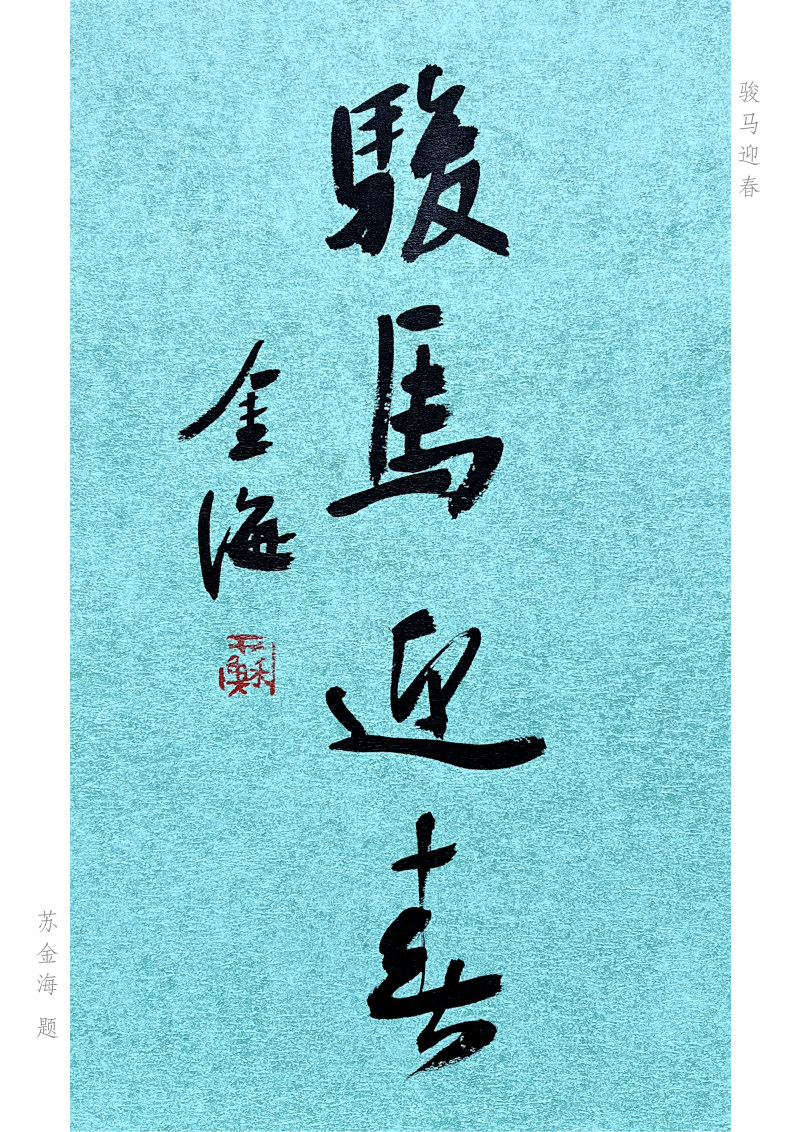 骏马迎春
駿馬迎春
金海
蘇
苏金海 题